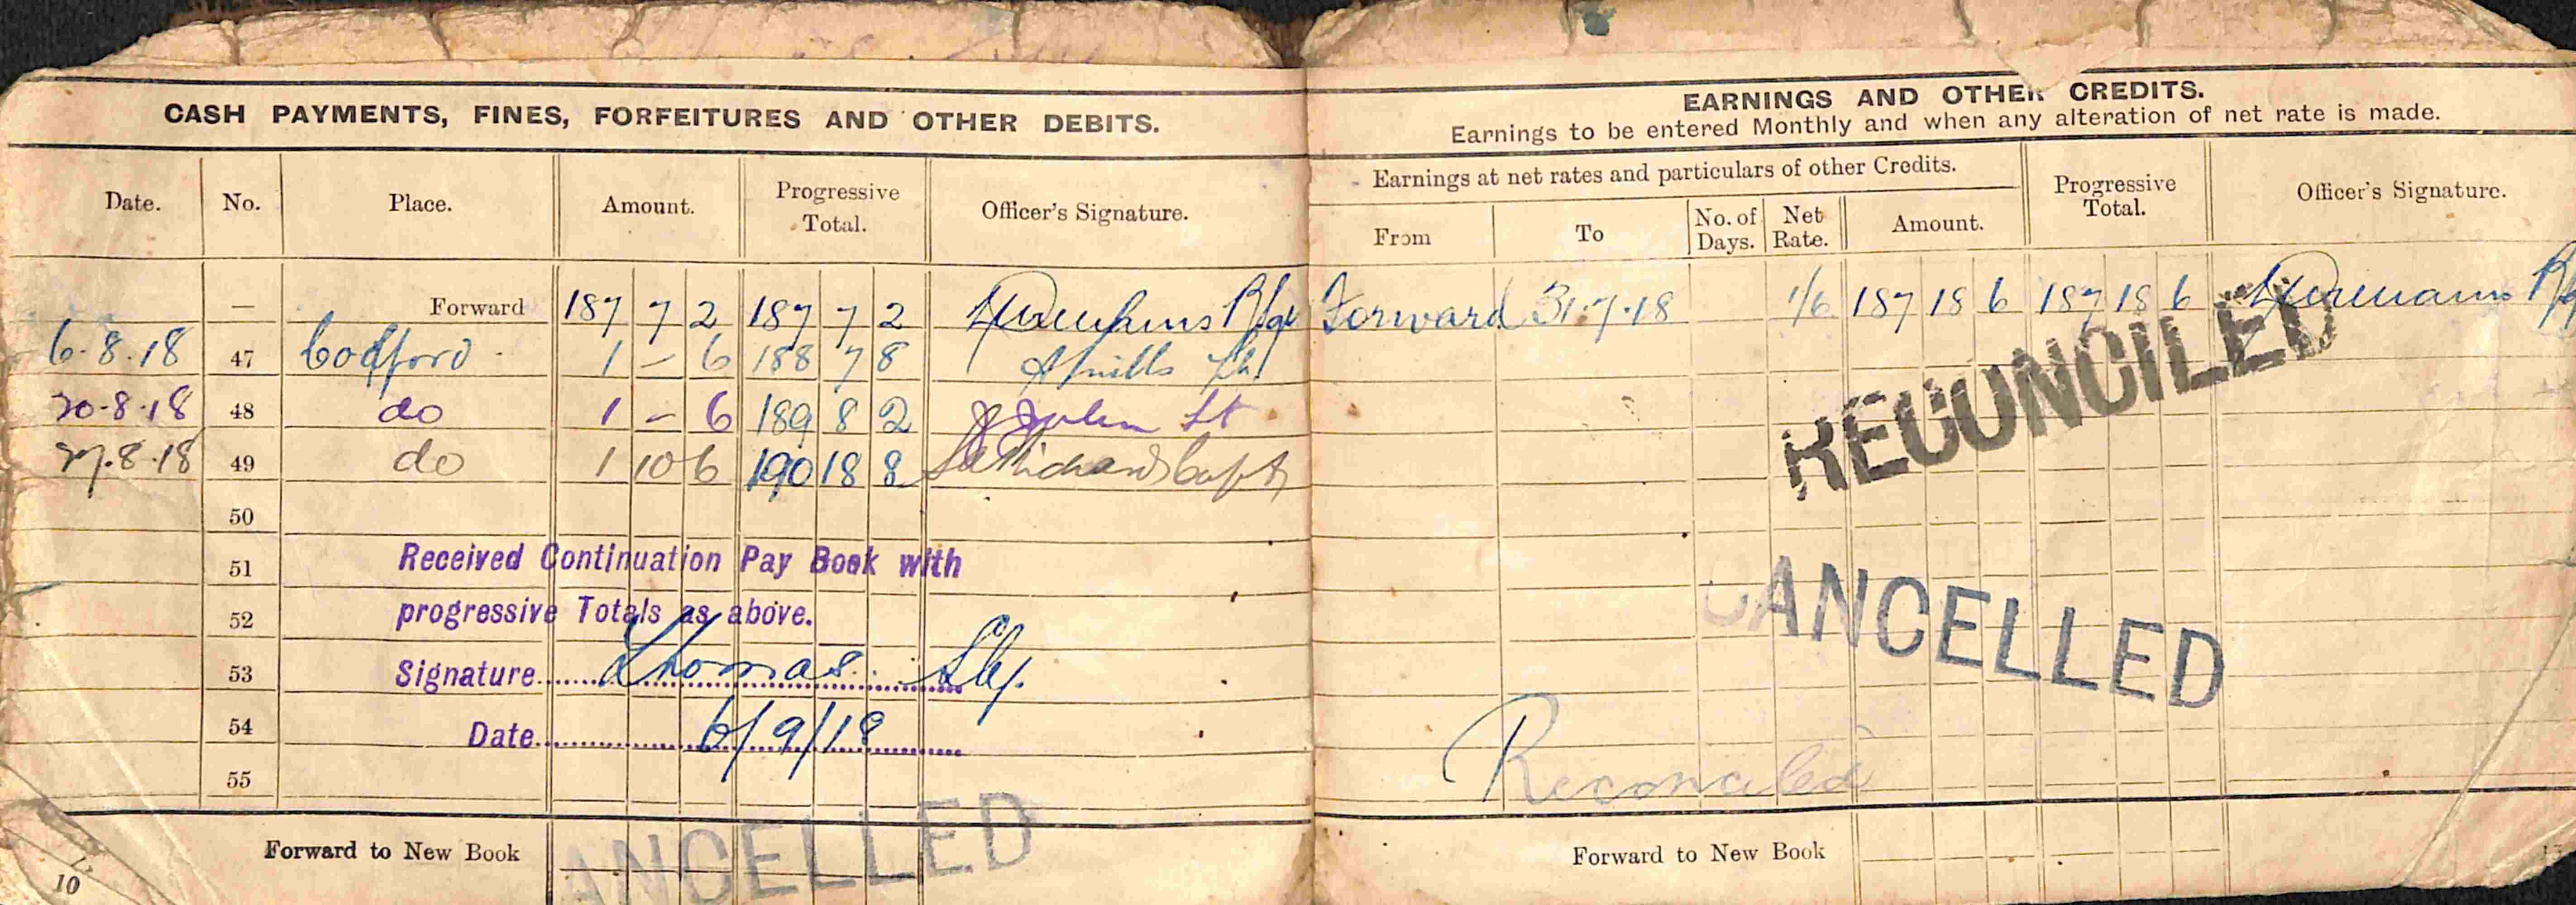 CASH PAYMENTS, FINES, FORFEITURES AND OTHER DEBITS.
Date. No. Place. Amount. Progressive Total. Officer's Signature.
— Forward 187 7 2 187 7 2
6.8.18 47 Codford 1 – 6 188 7 8
20.8.18 48 do 1 – 6 189 8 2
27.8.18 49 do 1 10 6 190 18 8 Richards Capt
50
51 Received Continuation Pay Book with
52 progressive Totals as above.
53 Signature Thomas
54 Date 6/9/18
55
Forward to New Book
CANCELLED
10
EARNINGS AND OTHER CREDITS.
Earnings to be entered Monthly and when any alteration of net rate is made.
Earnings at net rates and particulars of other Credits. Progressive Total. Officer's Signature.
From To No. of Days. Net Rate. Amount.
Forward 31.7.18 1/6 187 18 6 187 18 6
RECONCILED
CANCELLED
Reconciled
Forward to New Book